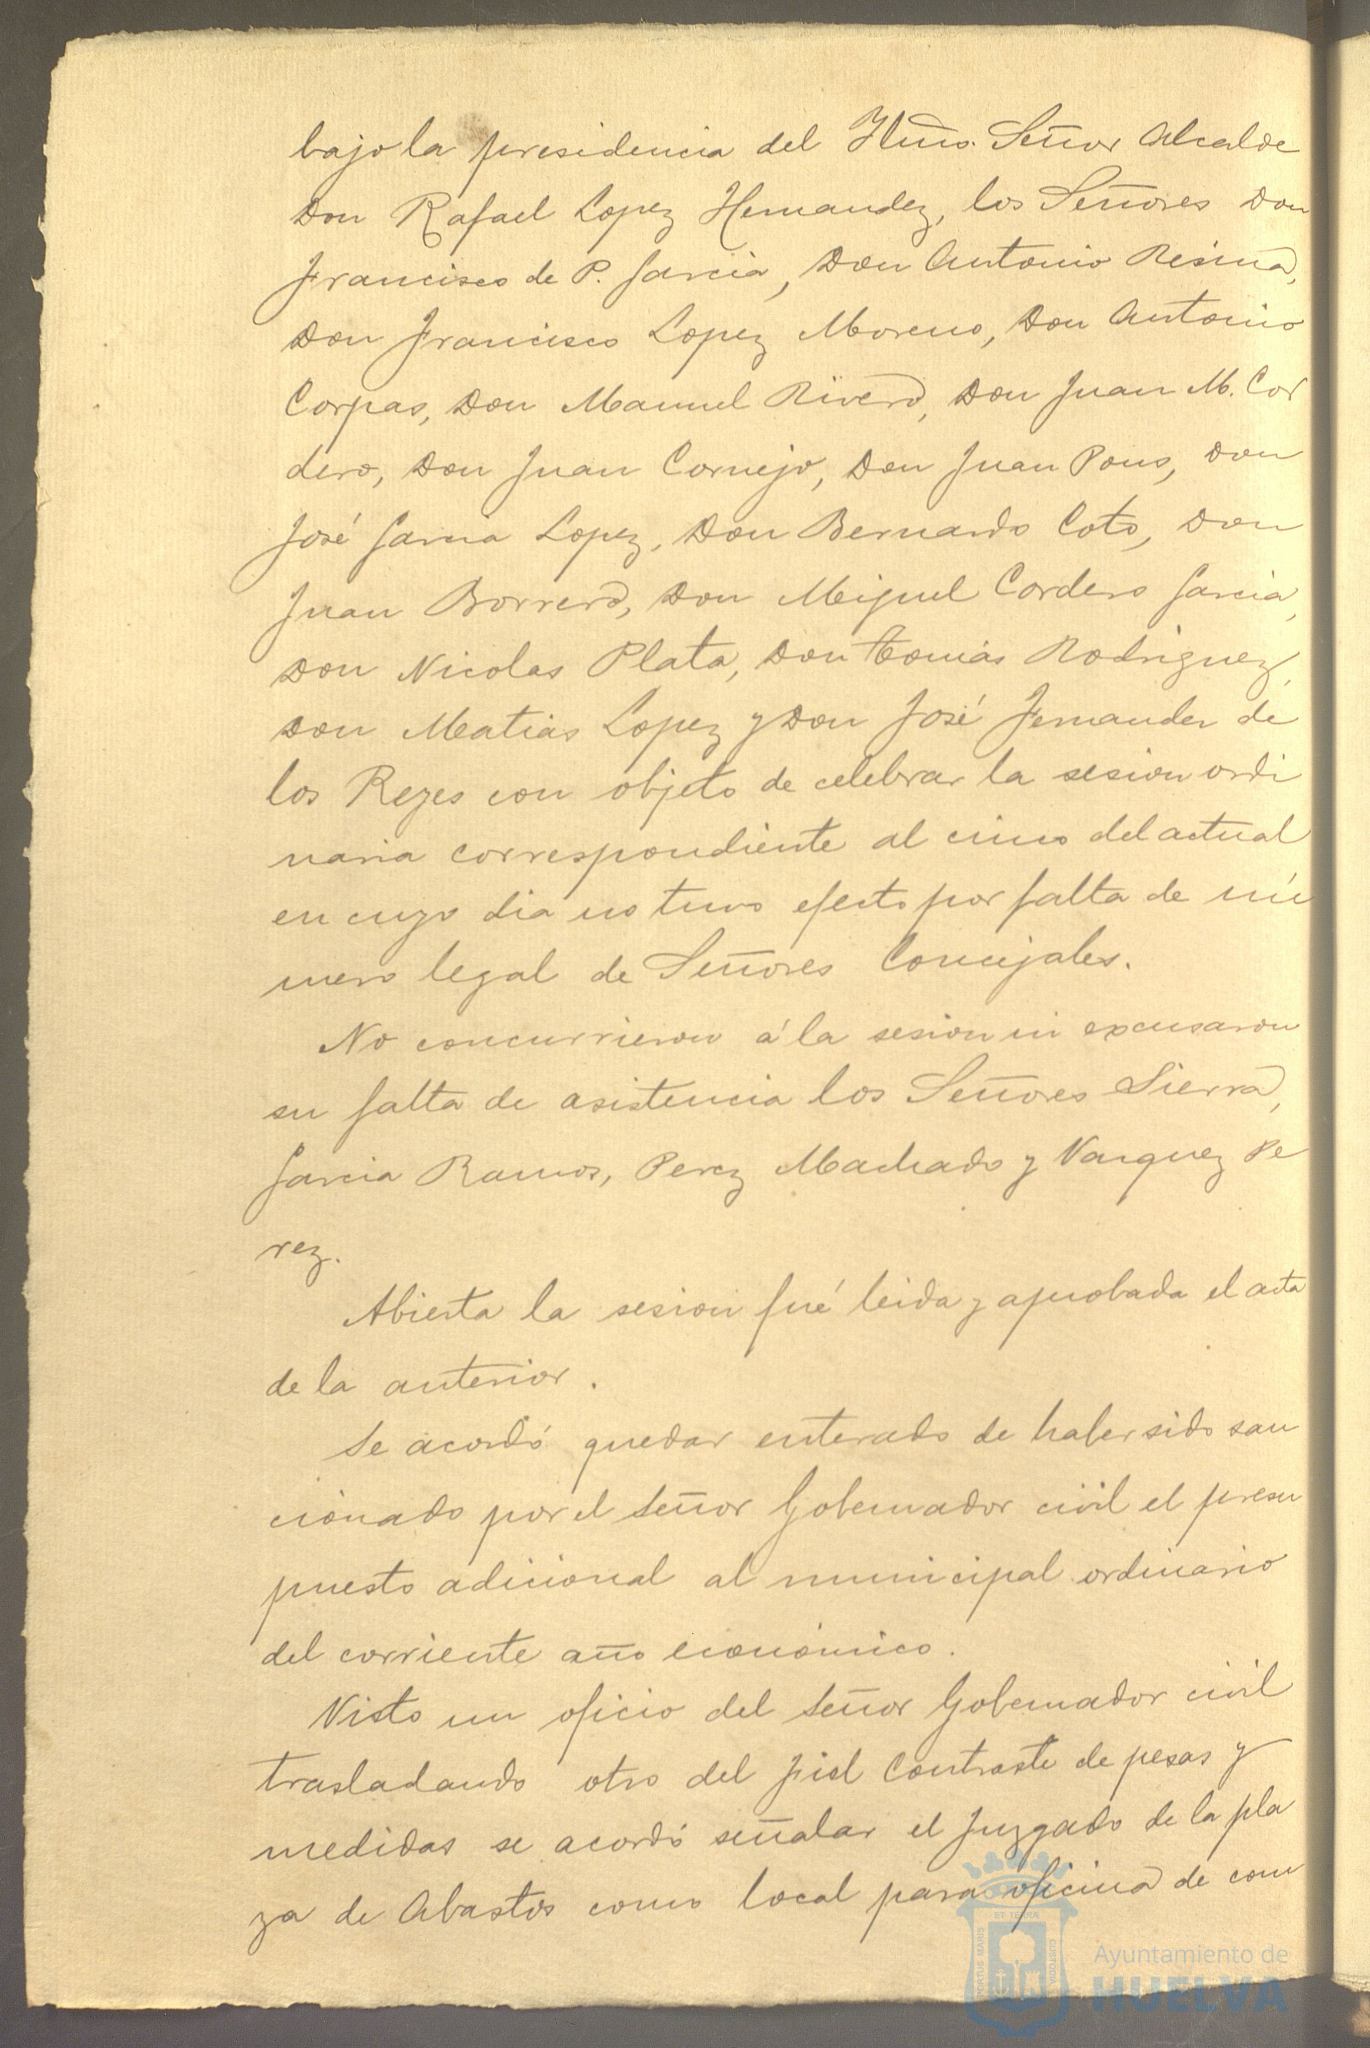 bajo la presidencia del Iltmo. Señor Alcalde
Don Rafael Lopez Hernandez, los Señores Don
Francisco de P. Garcia, Don Antonio Resina,
Don Francisco Lopez Moreno, Don Antonio
Corpas, Don Manuel Rivero, Don Juan M. Cor
dero, Don Juan Cornejo, Don Juan Pons, Don
José Garcia Lopez, Don Bernardo Coto, Don
Juan Borrero, Don Miguel Cordero Garcia,
Don Nicolas Plata, Don Tomás Rodriguez,
Don Matias Lopez y Don José Fernandez de
los Reyes con objeto de celebrar la sesion ordi
naria correspondiente al cinco del actual
en cuyo dia no tuvo efecto por falta de nú
mero legal de Señores Concejales.
No concurrieron á la sesion ni excusaron
su falta de asistencia los Señores Sierra,
Garcia Ramos, Perez Machado y Vazquez Pe
rez.
Abierta la sesion fué leida y aprobada el acta
de la anterior.
Se acordó quedar enterado de haber sido san
cionado por el Señor Gobernador civil el presu
puesto adicional al municipal ordinario
del corriente año económico.
Visto un oficio del Señor Gobernador civil
trasladando otro del Fiel Contraste de pesas y
medidas se acordó señalar el Juzgado de la pla
za de Abastos como local para oficina de com
PORTUS MARIS
ET TERRÆ
CUSTODIA
Ayuntamiento de
HUELVA